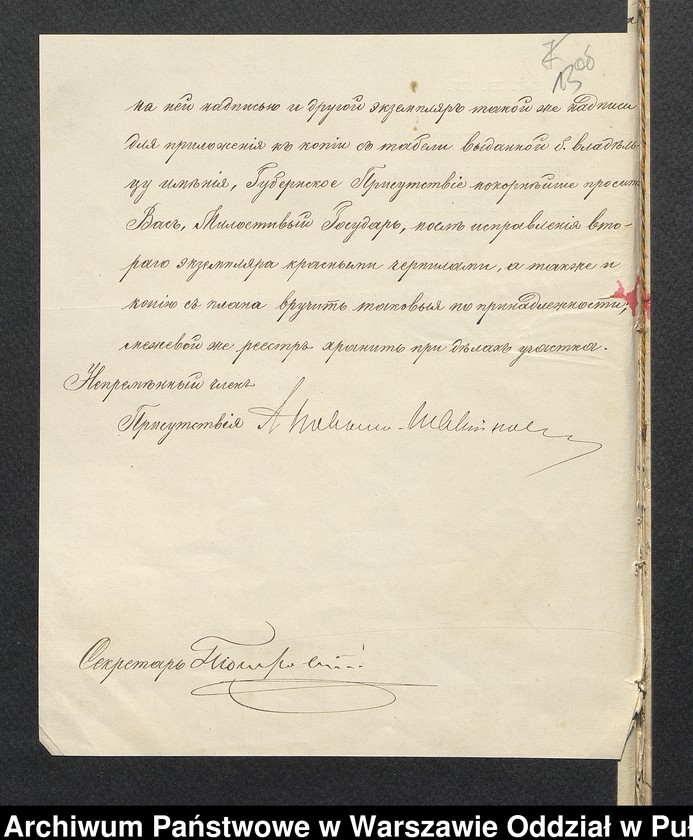 на ней надписью и другой экземпляръ такой же надписи
для приложенія къ копіи съ табели выданной б. владѣль-
цу имѣнія, Губернское Присутствіе покорнѣйше просит
Васъ, Милостивый Государь, послѣ исправленія вто-
раго экземпляра красными чернилами, а также и
копію съ плана вручить таковыя по принадлежности,
межевой же реестръ хранить при дѣлахъ участка.
Непремѣнный членъ
Присутствія
Секретарь
Archiwum Państwowe w Warszawie Oddział w Pu